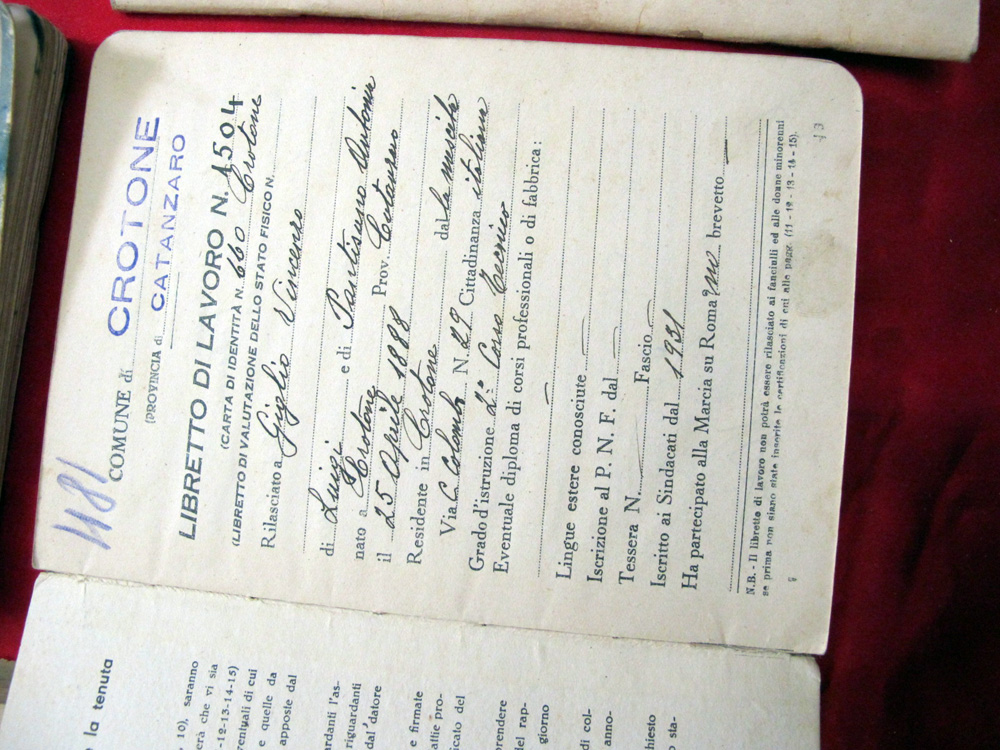 1181
COMUNE di CROTONE
(PROVINCIA di CATANZARO
LIBRETTO DI LAVORO N. 1504
(CARTA DI IDENTITÀ N. 660 Crotone
(LIBRETTO DI VALUTAZIONE DELLO STATO FISICO N.
Rilasciato a Giglio Vincenzo
di Luigi e di Pantisano Antonia
nato a Crotone Prov. Catanzaro
il 25 Aprile 1888
Residente in Crotone dal la nascita
Via C. Colombo N. 29 Cittadinanza italiana
Grado d'istruzione 2° Corso Tecnico
Eventuale diploma di corsi professionali o di fabbrica:
Lingue estere conosciute
Iscrizione al P. N. F. dal
Tessera N. Fascio
Iscritto ai Sindacati dal 1931
Ha partecipato alla Marcia su Roma no brevetto
N.B. - Il libretto di lavoro non potrà essere rilasciato ai fanciulli ed alle donne minorenni
se prima non siano state inserite le certificazioni di cui alle pagg. (11 - 12 - 13 - 14 - 15).
la tenuta
10), saranno
erà che vi sia
-12-13-14-15)
e quelle da
apposte dal
ardanti l'as-
riguardanti
dal datore
e firmate
icato del
prendere
del rap-
giorno
di col-
anno-
sta-